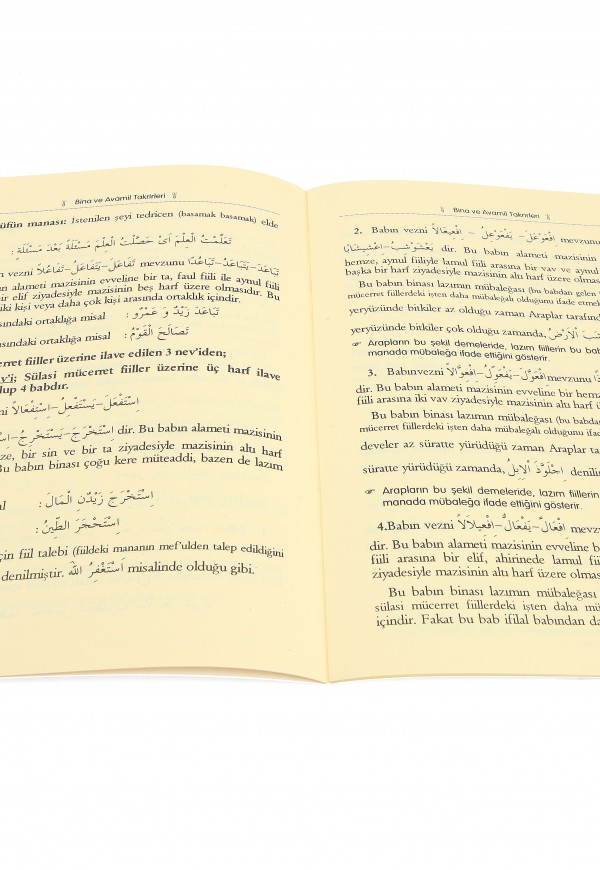 Bina ve Avamil Takrirleri
manası: Istenilen şeyi tedricen (basamak basamak) elde
تَعَلَّمْتُ الْعِلْمَ اَىْ حَصَّلْتُ الْعِلْمَ مَسْئَلَةً بَعْدَ مَسْئَلَةٍ :
vezni تَفَاعَلَ-يَتَفَاعَلُ-تَفَاعُلاً mevzunu تَبَاعَدَ-يَتَبَاعَدُ-تَبَاعُدًا
alameti mazisinin evveline bir ta, faul fiili ile aynul fiil
bir elif ziyadesiyle mazisinin beş harf üzere olmasıdır. Bu
iki kişi veya daha çok kişi arasında ortaklık içindir.
ortaklığa misal : تَبَاعَدَ زَيْدٌ وَ عَمْرٌو
ortaklığa misal : تَصَالَحَ الْقَوْمُ
fiiller üzerine ilave edilen 3 nev'iden;
Sülasi mücerret fiiller üzerine üç harf ilave
4 babdır.
اِسْتَفْعَلَ-يَسْتَفْعِلُ-اِسْتِفْعَالاً
اِسْتَخْرَجَ-يَسْتَخْرِجُ dir. Bu babın alameti mazisinin
bir sin ve bir ta ziyadesiyle mazisinin altı harf
Bu babın binası çoğu kere müteaddi, bazen de lazım
اِسْتَخْرَجَ زَيْدٌنِ الْمَالَ :
اِسْتَحْجَرَ الطِّينُ :
fiil talebi (fiildeki mananın mef'ulden talep edildiğini
denilmiştir. اَسْتَغْفِرُ اللهَ misalinde olduğu gibi.
Bina ve Avamil Takrirleri
2. Babın vezni اِفْعَوْعَلَ-يَفْعَوْعِلُ-اِفْعِيعَالاً mevzunu
يَعْشَوْشِبُ-اِعْشِيشَابًا dir. Bu babın alameti mazisinin
hemze, aynul fiiliyle lamul fiili arasına bir vav ve aynul
başka bir harf ziyadesiyle mazisinin altı harf üzere
Bu babın binası lazımın mübaleğası (bu babdan gelen
mücerret fiillerdeki işten daha mübaleğalı olduğunu ifade
yeryüzünde bitkiler az olduğu zaman Araplar
yeryüzünde bitkiler çok olduğu zamanda, الْاَرْضُ
☞ Arapların bu şekil demeleride, lazım fiillerin bu
manada mübaleğa ifade ettiğini gösterir.
3. Babın vezni اِفْعَوَّلَ-يَفْعَوِّلُ-اِفْعِوَّالاً mevzunu
dir. Bu babın alameti mazisinin evveline bir
fiili arasına iki vav ziyadesiyle mazisinin altı harf
Bu babın binası lazımın mübaleğası (bu
mücerret fiillerdeki işten daha mübaleğalı olduğunu
develer az süratte yürüdüğü zaman Araplar
süratte yürüdüğü zamanda, اِجْلَوَّذَ الْاِبِلُ
☞ Arapların bu şekil demeleride, lazım fiillerin
manada mübaleğa ifade ettiğini gösterir.
4.Babın vezni اِفْعَالَّ-يَفْعَالُّ-اِفْعِيلَالاً
dir. Bu babın alameti mazisinin evveline bir
fiili arasına bir elif, ahirinede lamul fiili
ziyadesiyle mazisinin altı harf üzere
Bu babın binası lazımın mübaleğası
sülasi mücerret fiillerdeki işten daha
içindir. Fakat bu bab ifilal babından